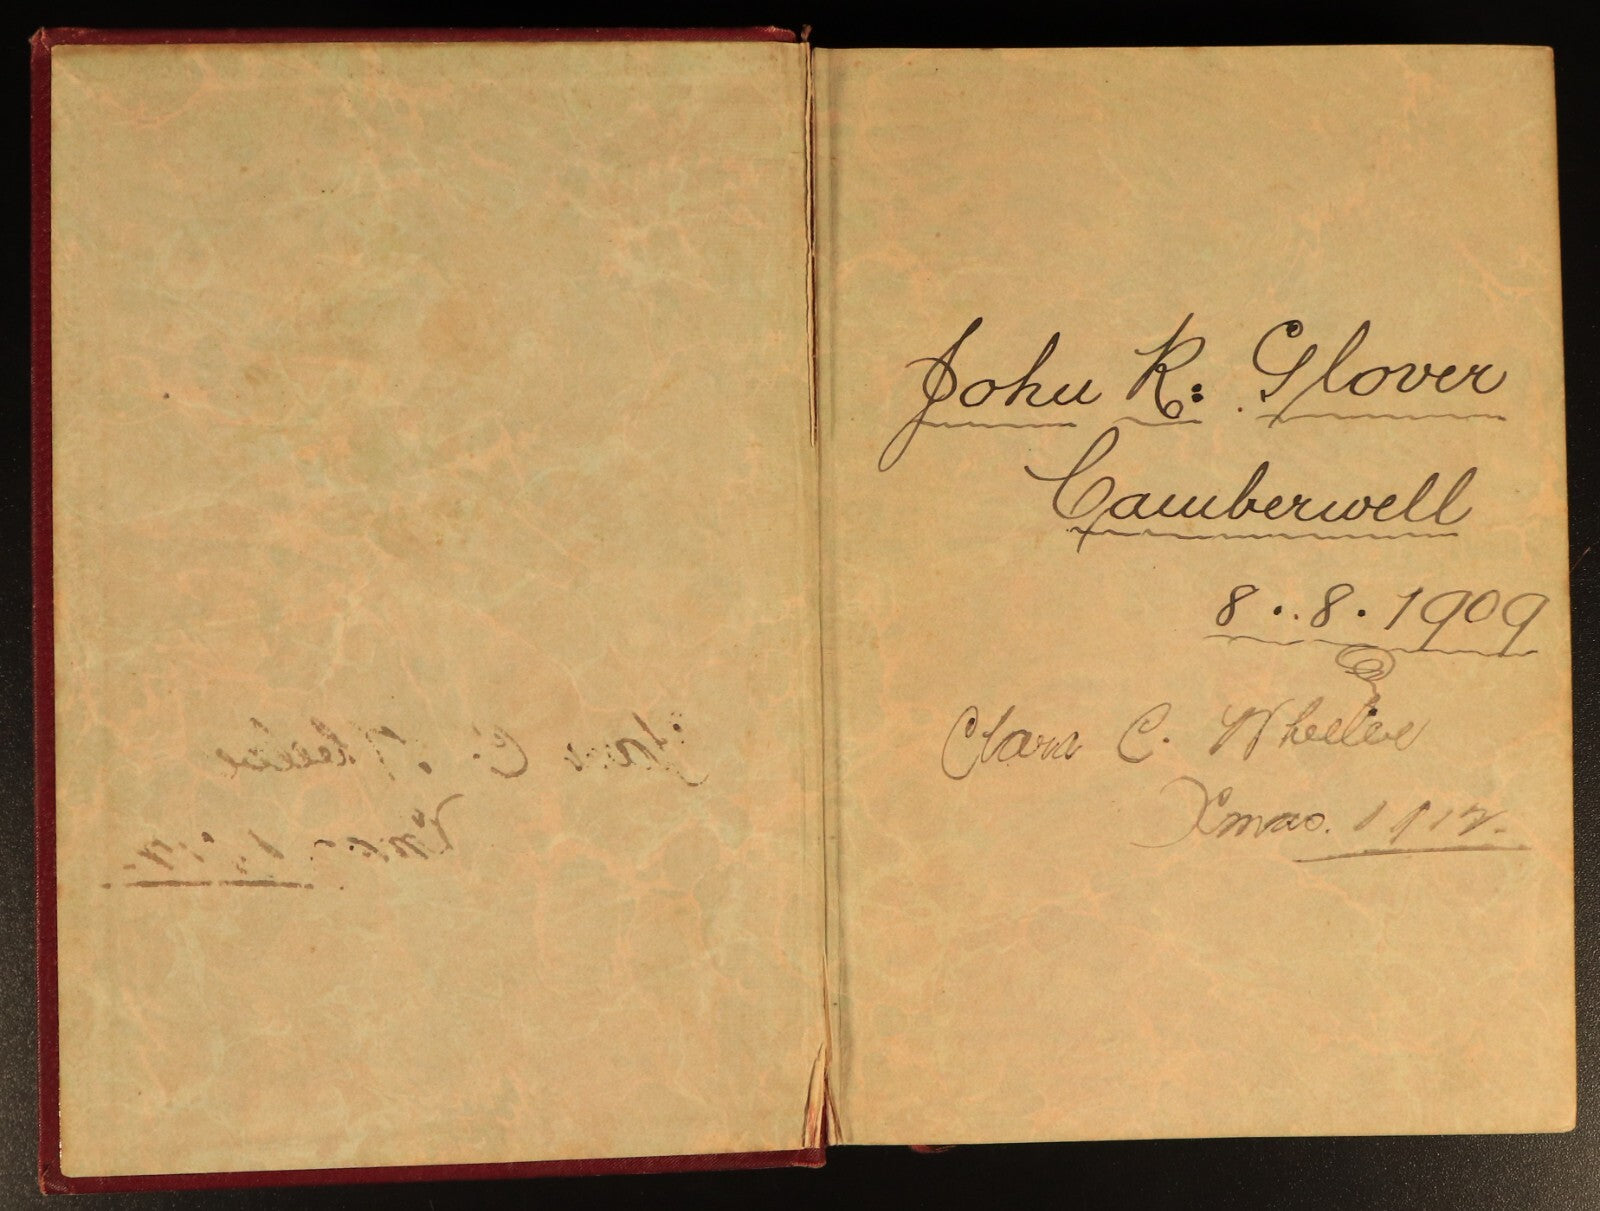 John R: Glover
Camberwell
8..8.1909
Clara C. Wheeler
Xmas. 1912.